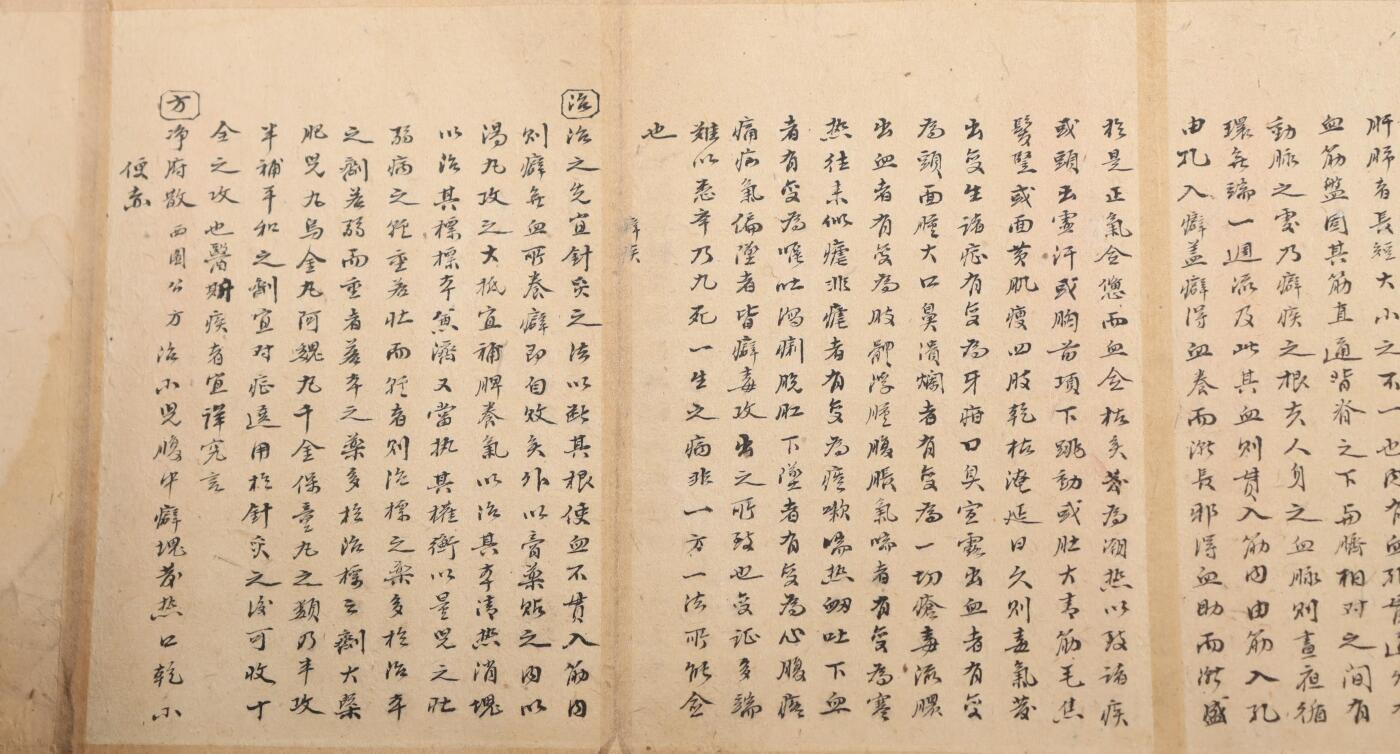 肝肺者長短大小之不一也内有血
血筋盤固其筋直通背脊之下与臍相对之间有
動脉之处乃癖疾之根夫人身之血脉则晝夜循
環無端一週流及此其血则貫入筋内由筋入孔
由孔入癖盖癖得血養而漸長邪得血助而漸盛
於是正氣合憊而血合枯矣發為潮热以致诸疾
或頭出虚汗或胸前項下跳動或肚大青筋毛焦
髮竪或面黄肌瘦四肢乾枯淹延日久则毒氣發
出变生诸症有变為牙疳口臭宣露出血者有变
為頭面腫大口鼻潰爛者有变為一切瘡毒流膿
出血者有变為肢體浮腫腹脹氣喘者有变為寒
热往来似瘧非瘧者有变為痰嗽喘热衂吐下血
者有变為嘔吐瀉痢脱肛下墜者有变為心腹疼
痛疝氣偏墜者皆癖毒攻出之所致也变证多端
難以悉举乃九死一生之病非一方一法所能全
也
癖疾
治
治之先宜針灸之法以断其根使血不貫入筋内
则癖無血所養癖即自效矣外以膏藥贴之内以
湯丸攻之大抵宜補脾養氣以治其本清热消塊
以治其標標本兼濟又當执其權衡以量児之壮
弱病之軽重若壮而軽者则治標之藥多於治本
之劑若弱而重者若本之藥多於治標之劑大槩
肥児丸烏金丸阿魏丸千金保童丸之類乃半攻
半補平和之劑宜对症選用於針灸之後可收十
全之攻也醫斯疾者宜詳究言
方
净府散西園公方治小児腹中癖塊發热口乾小
便赤